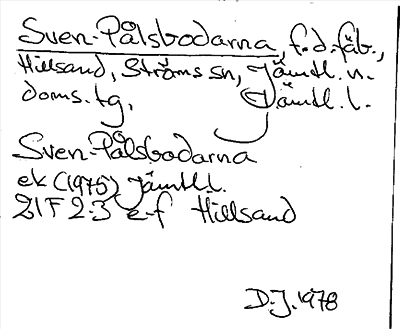 Sven-Pålsbodarna, f.d. fäb.,
Hillsand, Ströms sn, Jämtl. n.
doms. tg, Jämtl. l.
Sven-Pålsbodarna
ek (1975) Jämtl.l.
21F 2-3 e-f Hillsand
D.J. 1978